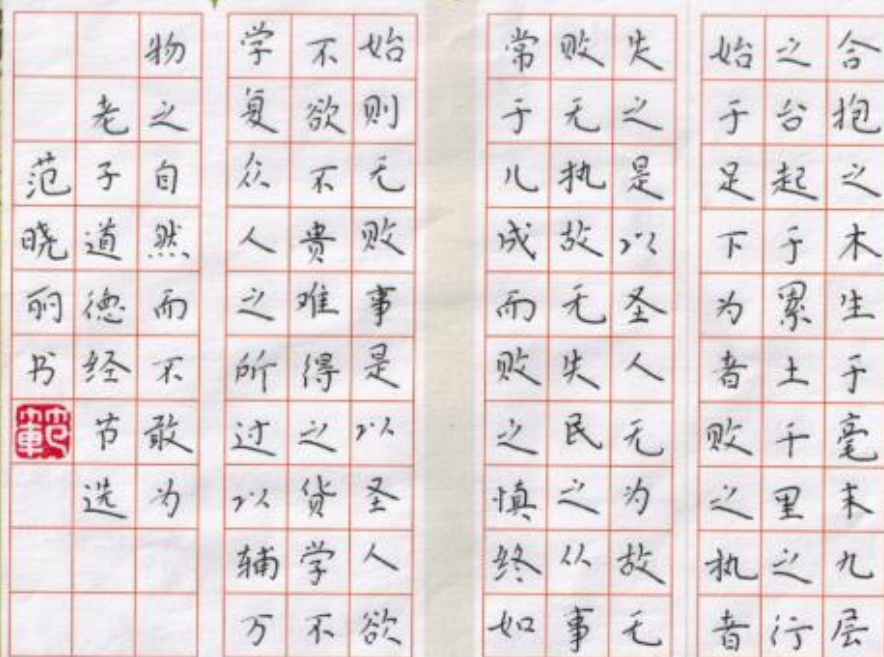 合抱之木生于毫末九层
之台起于累土千里之行
始于足下为者败之执者
失之是以圣人无为故无
败无执故无失民之从事
常于几成而败之慎终如
始则无败事是以圣人欲
不欲不贵难得之货学不
学复众人之所过以辅万
物之自然而不敢为
老子道德经节选
范晓丽书
範